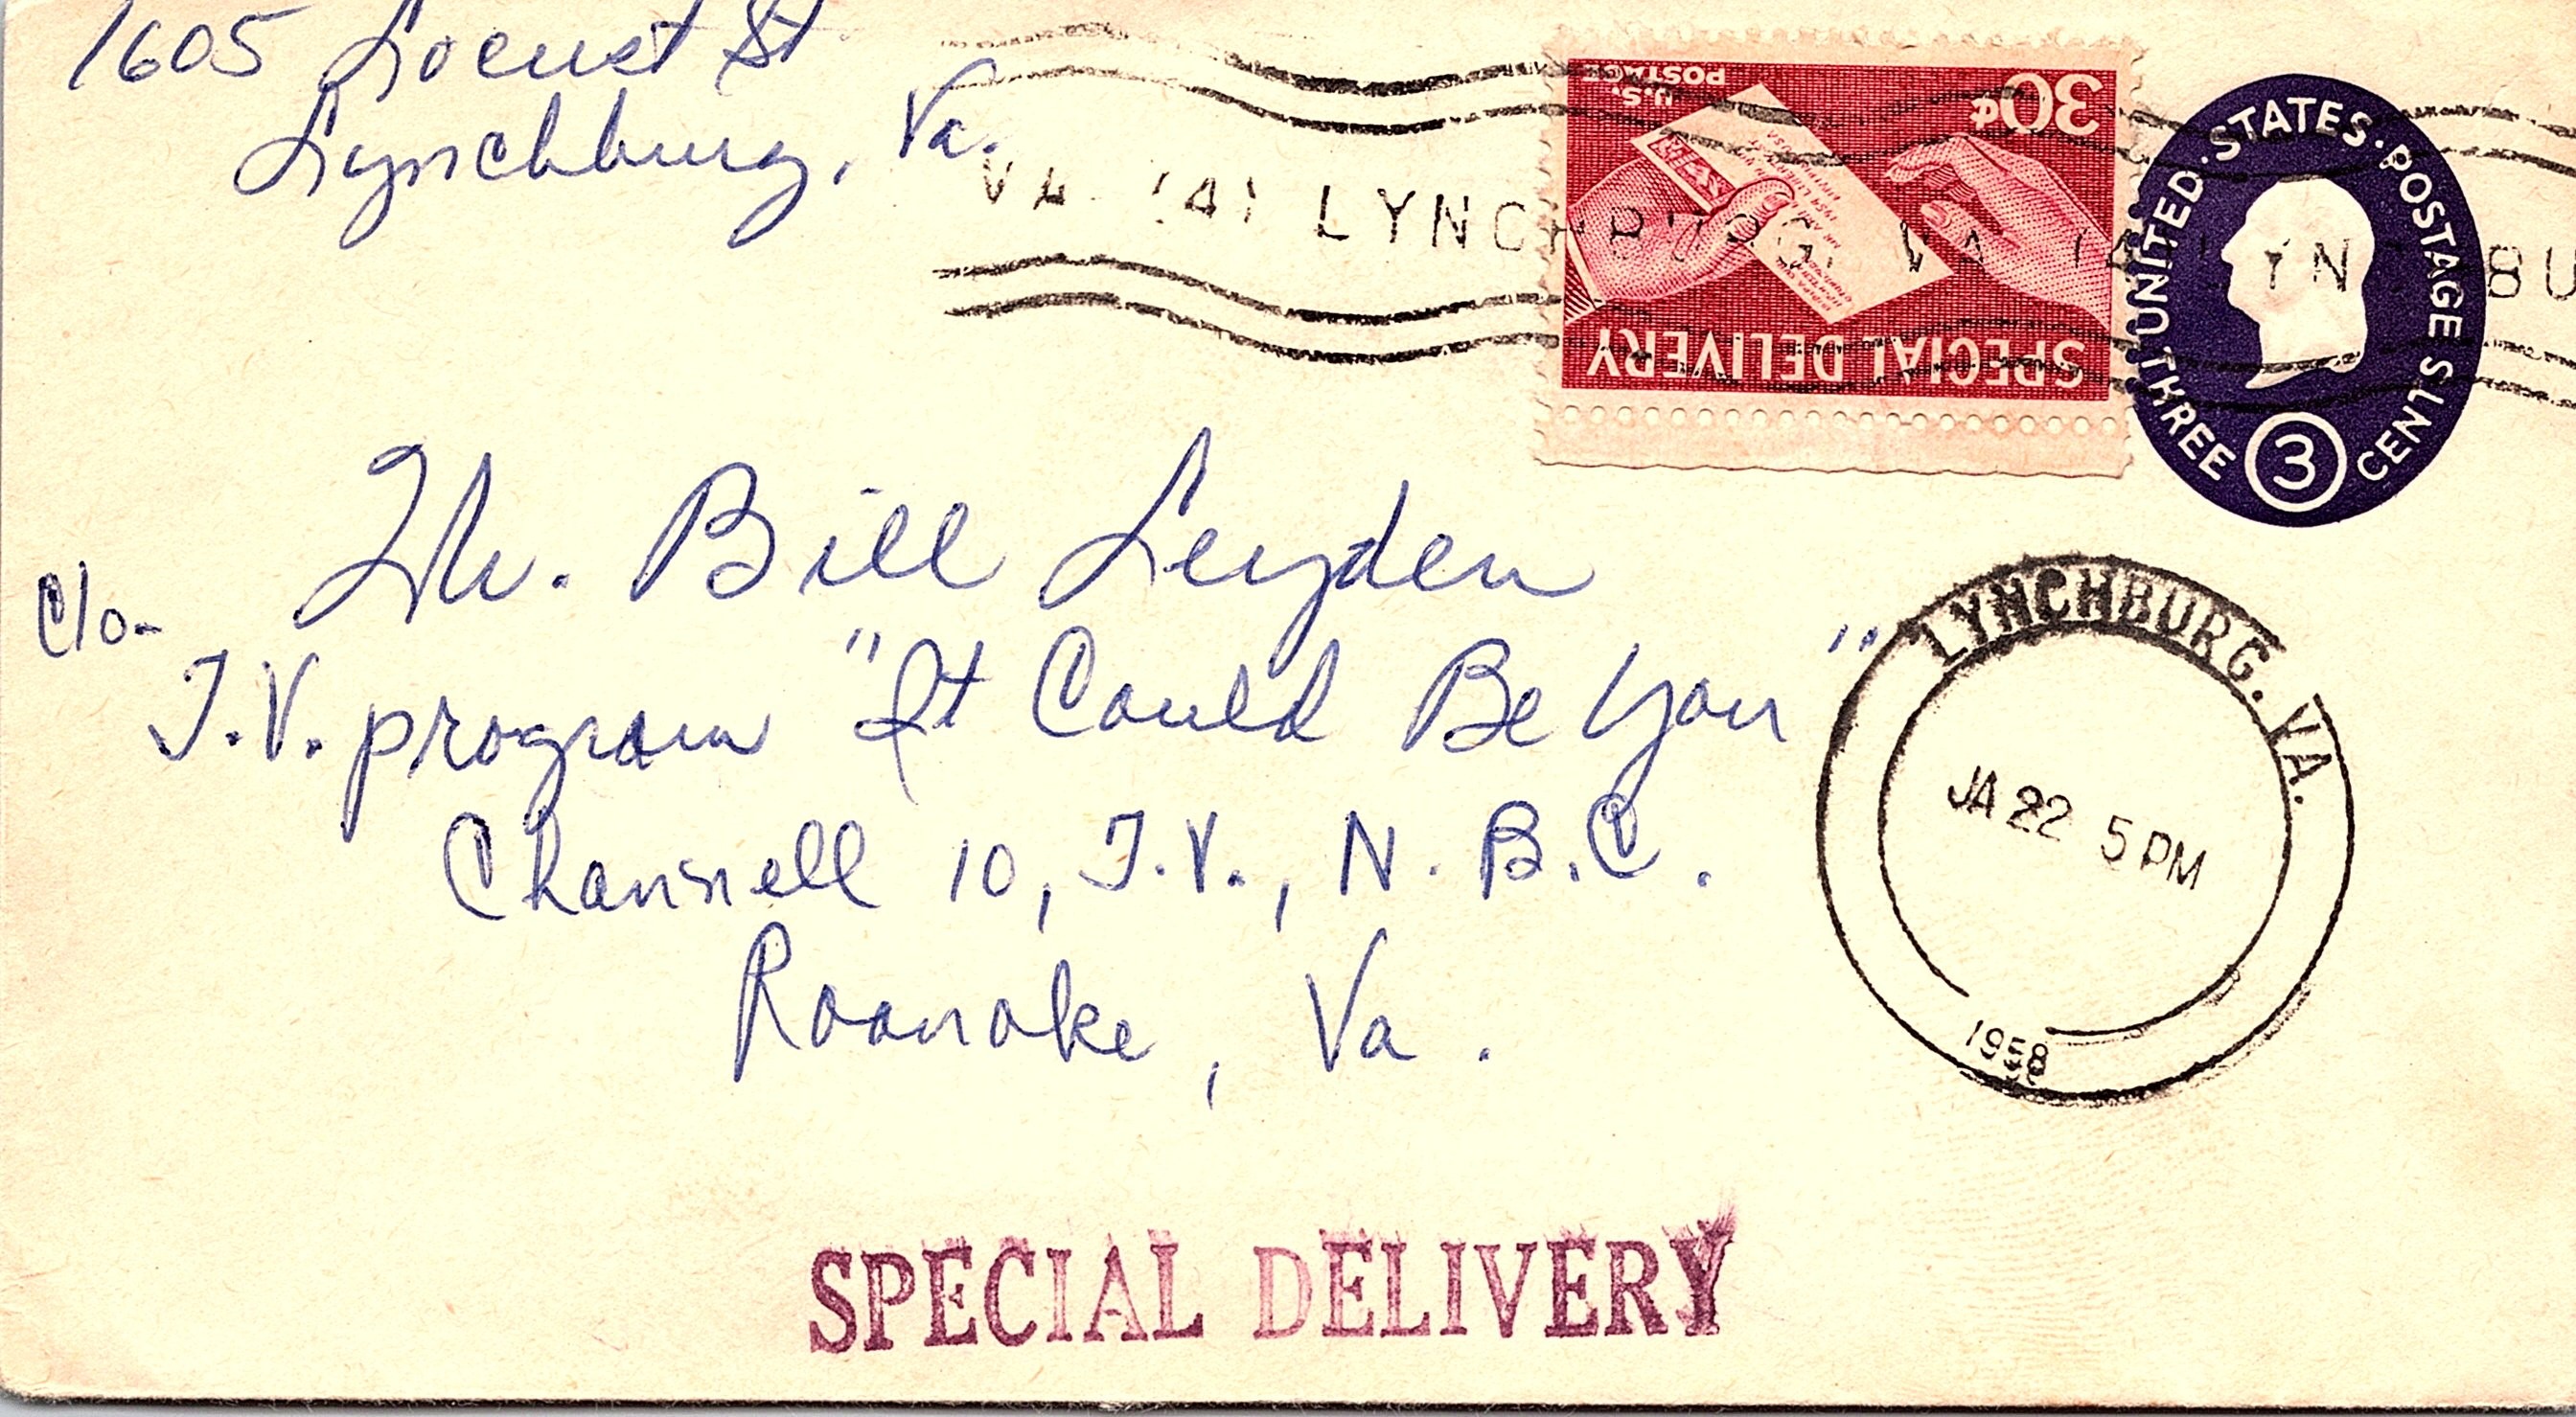 1605 Locust St.
Lynchburg, Va.
VA. 141 LYNCHBURG, VA. 141 LYNCHBU
30¢
U.S.
POSTAGE
SPECIAL DELIVERY
UNITED·STATES·POSTAGE
THREE 3 CENTS
Mr. Bill Leyden
c/o-
T.V. program "It Could Be You"
Channell 10, T.V., N.B.C.
Roanoke, Va.
LYNCHBURG. VA.
JA 22 5 PM
1958
SPECIAL DELIVERY